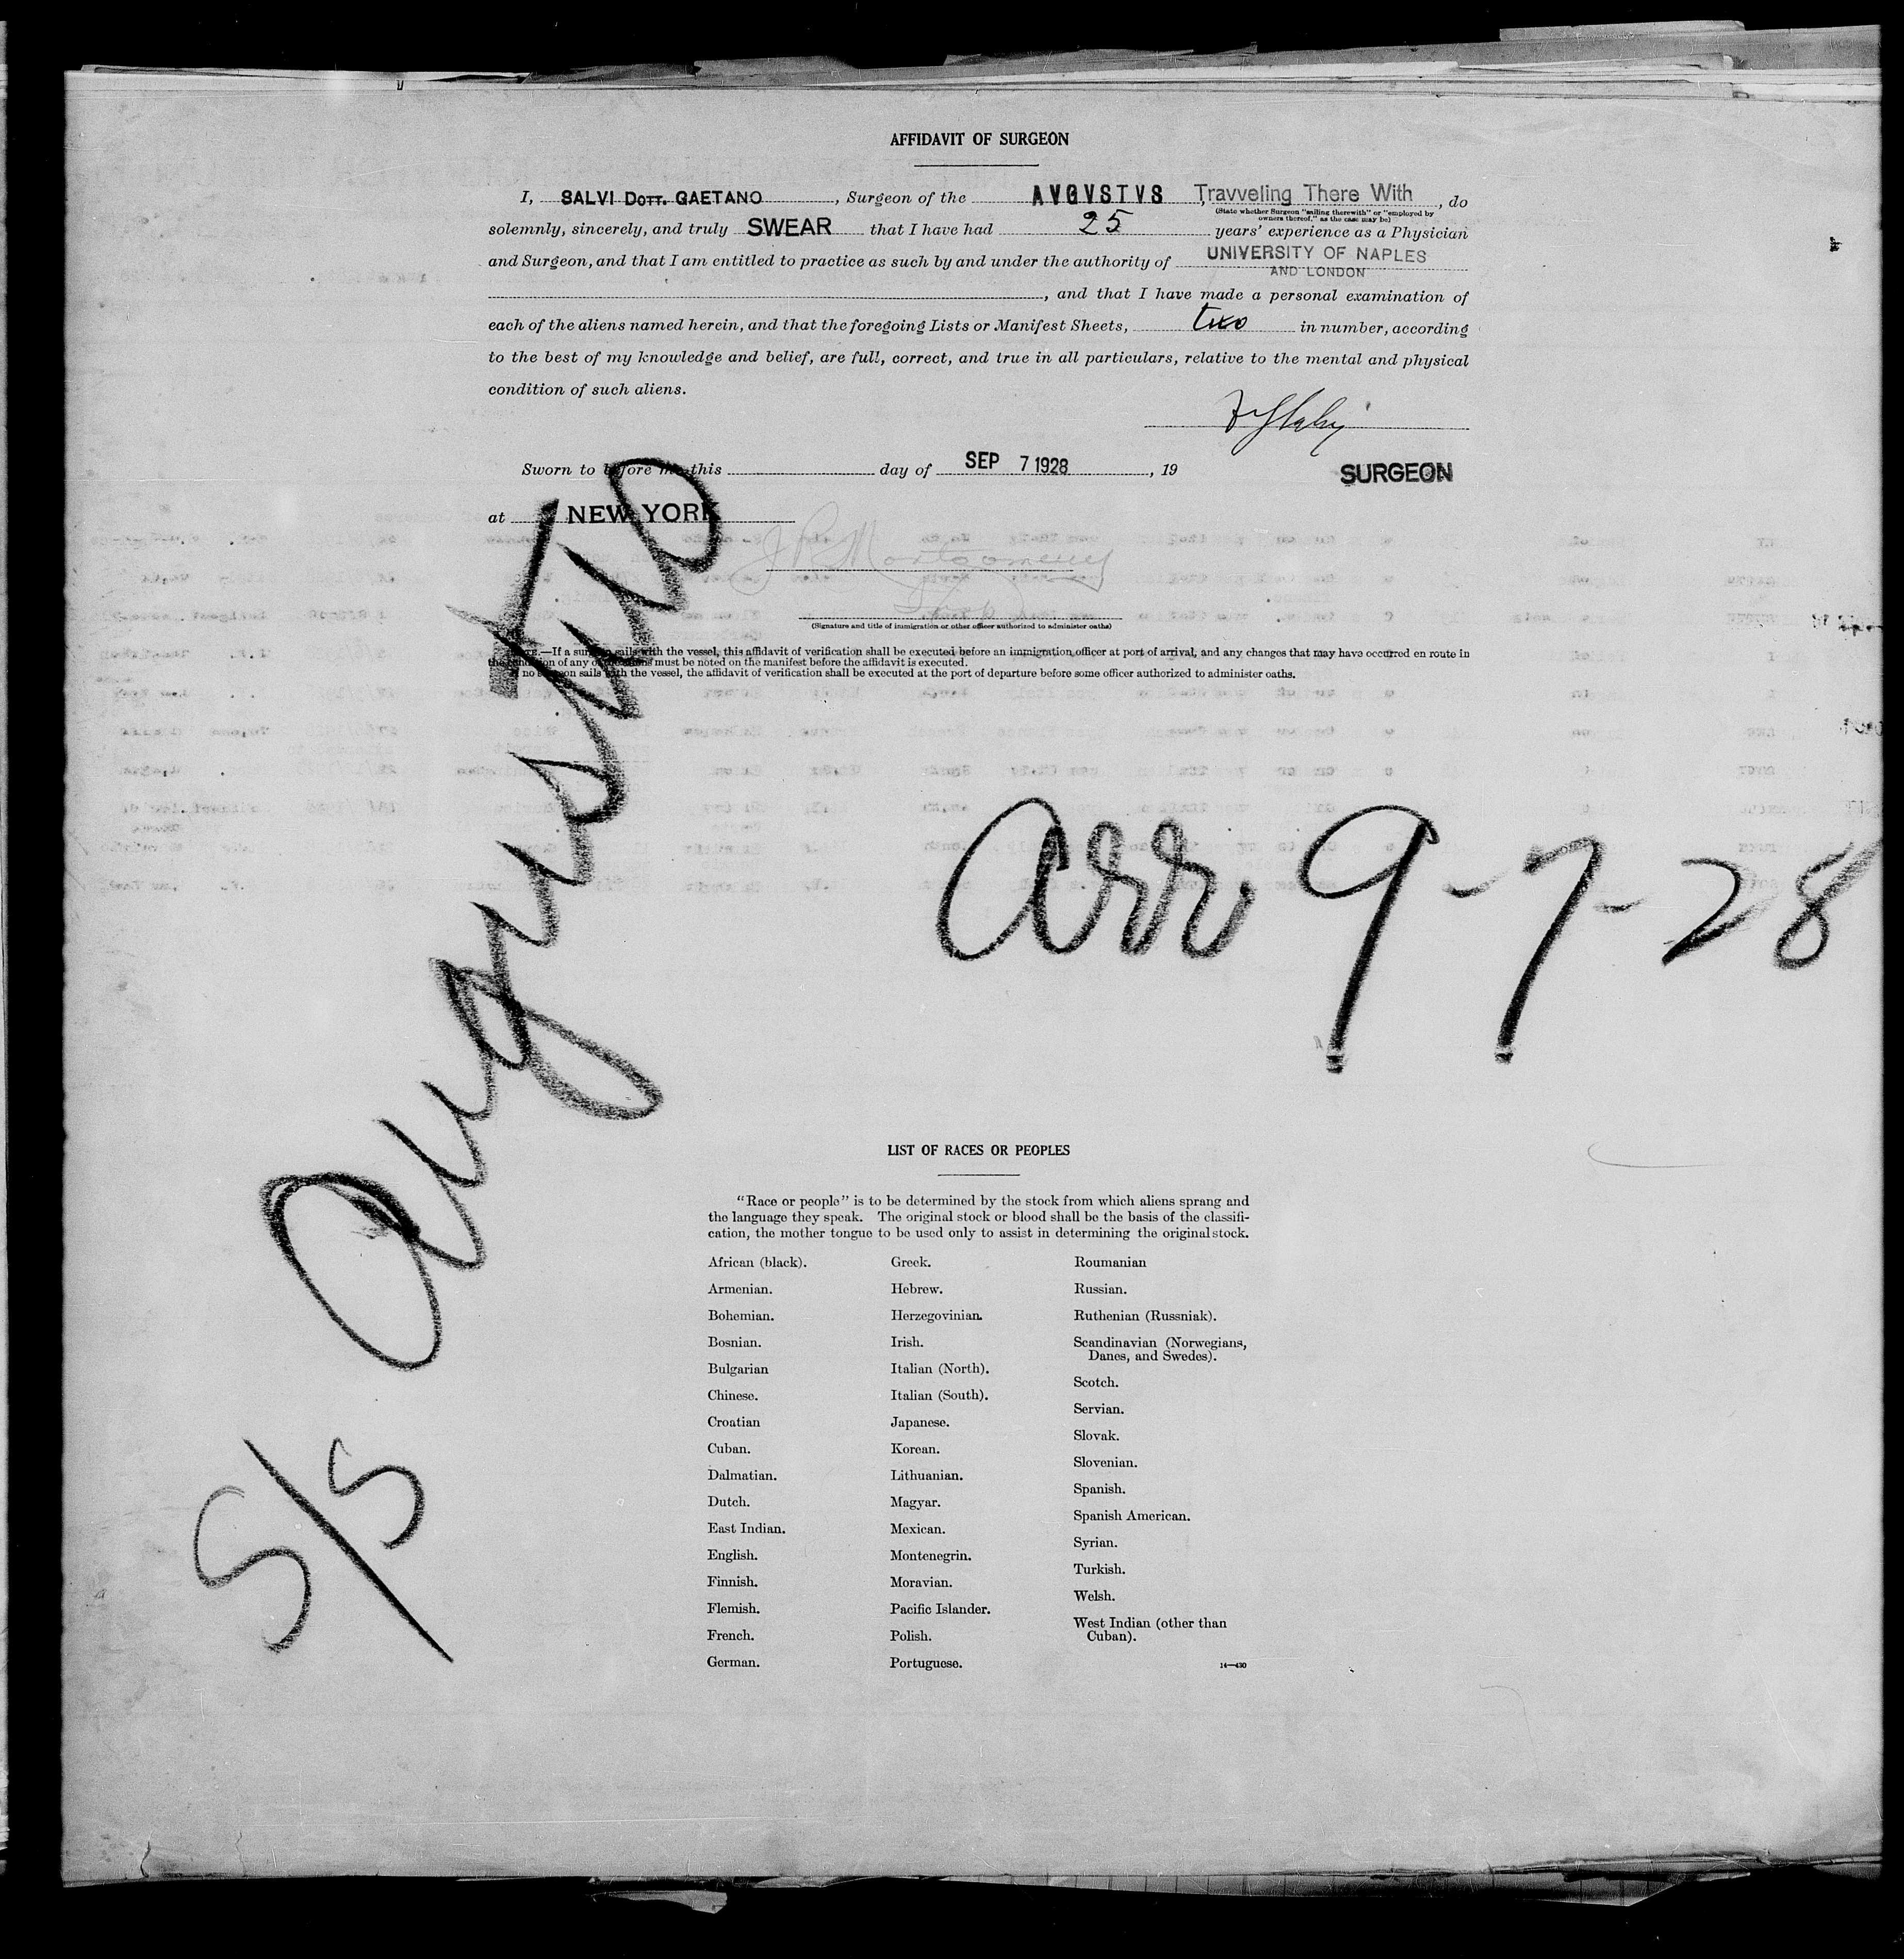 AFFIDAVIT OF SURGEON
I, SALVI DOTT. GAETANO, Surgeon of the AVGVSTVS, Travveling There With, do
(State whether Surgeon "sailing therewith" or "employed by
owners thereof," as the case may be)
solemnly, sincerely, and truly SWEAR that I have had 25 years' experience as a Physician
and Surgeon, and that I am entitled to practice as such by and under the authority of UNIVERSITY OF NAPLES
AND LONDON
, and that I have made a personal examination of
each of the aliens named herein, and that the foregoing Lists or Manifest Sheets, two in number, according
to the best of my knowledge and belief, are full, correct, and true in all particulars, relative to the mental and physical
condition of such aliens.
Sworn to before me this day of SEP 7 1928, 19
SURGEON
at NEW YORK
J R Montgomery
(Signature and title of immigration or other officer authorized to administer oaths)
NOTE.—If a surgeon sails with the vessel, this affidavit of verification shall be executed before an immigration officer at port of arrival, and any changes that may have occurred en route in
the condition of any of the aliens must be noted on the manifest before the affidavit is executed.
If no surgeon sails with the vessel, the affidavit of verification shall be executed at the port of departure before some officer authorized to administer oaths.
S/S Augustus
arr. 9-7-28
LIST OF RACES OR PEOPLES
"Race or people" is to be determined by the stock from which aliens sprang and
the language they speak. The original stock or blood shall be the basis of the classifi-
cation, the mother tongue to be used only to assist in determining the original stock.
African (black).
Armenian.
Bohemian.
Bosnian.
Bulgarian
Chinese.
Croatian
Cuban.
Dalmatian.
Dutch.
East Indian.
English.
Finnish.
Flemish.
French.
German.
Greek.
Hebrew.
Herzegovinian.
Irish.
Italian (North).
Italian (South).
Japanese.
Korean.
Lithuanian.
Magyar.
Mexican.
Montenegrin.
Moravian.
Pacific Islander.
Polish.
Portuguese.
Roumanian
Russian.
Ruthenian (Russniak).
Scandinavian (Norwegians,
Danes, and Swedes).
Scotch.
Servian.
Slovak.
Slovenian.
Spanish.
Spanish American.
Syrian.
Turkish.
Welsh.
West Indian (other than
Cuban).
14—430